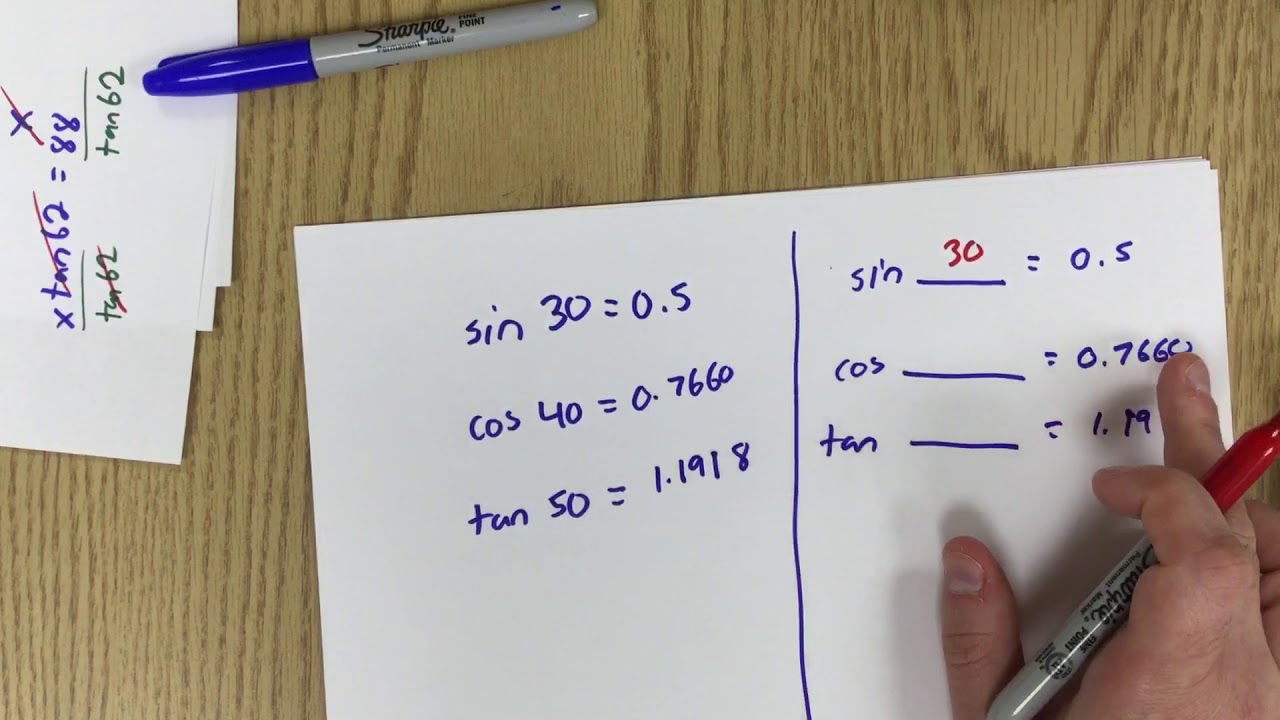 Sharpie
FINE POINT
Permanent Marker
x
x tan 62 = 88
tan 62 tan 62
sin 30 = 0.5
cos 40 = 0.7660
tan 50 = 1.1918
sin 30 = 0.5
cos ____ = 0.7660
tan ____ = 1.19
Sharpie
Permanent Marker
FINE POINT